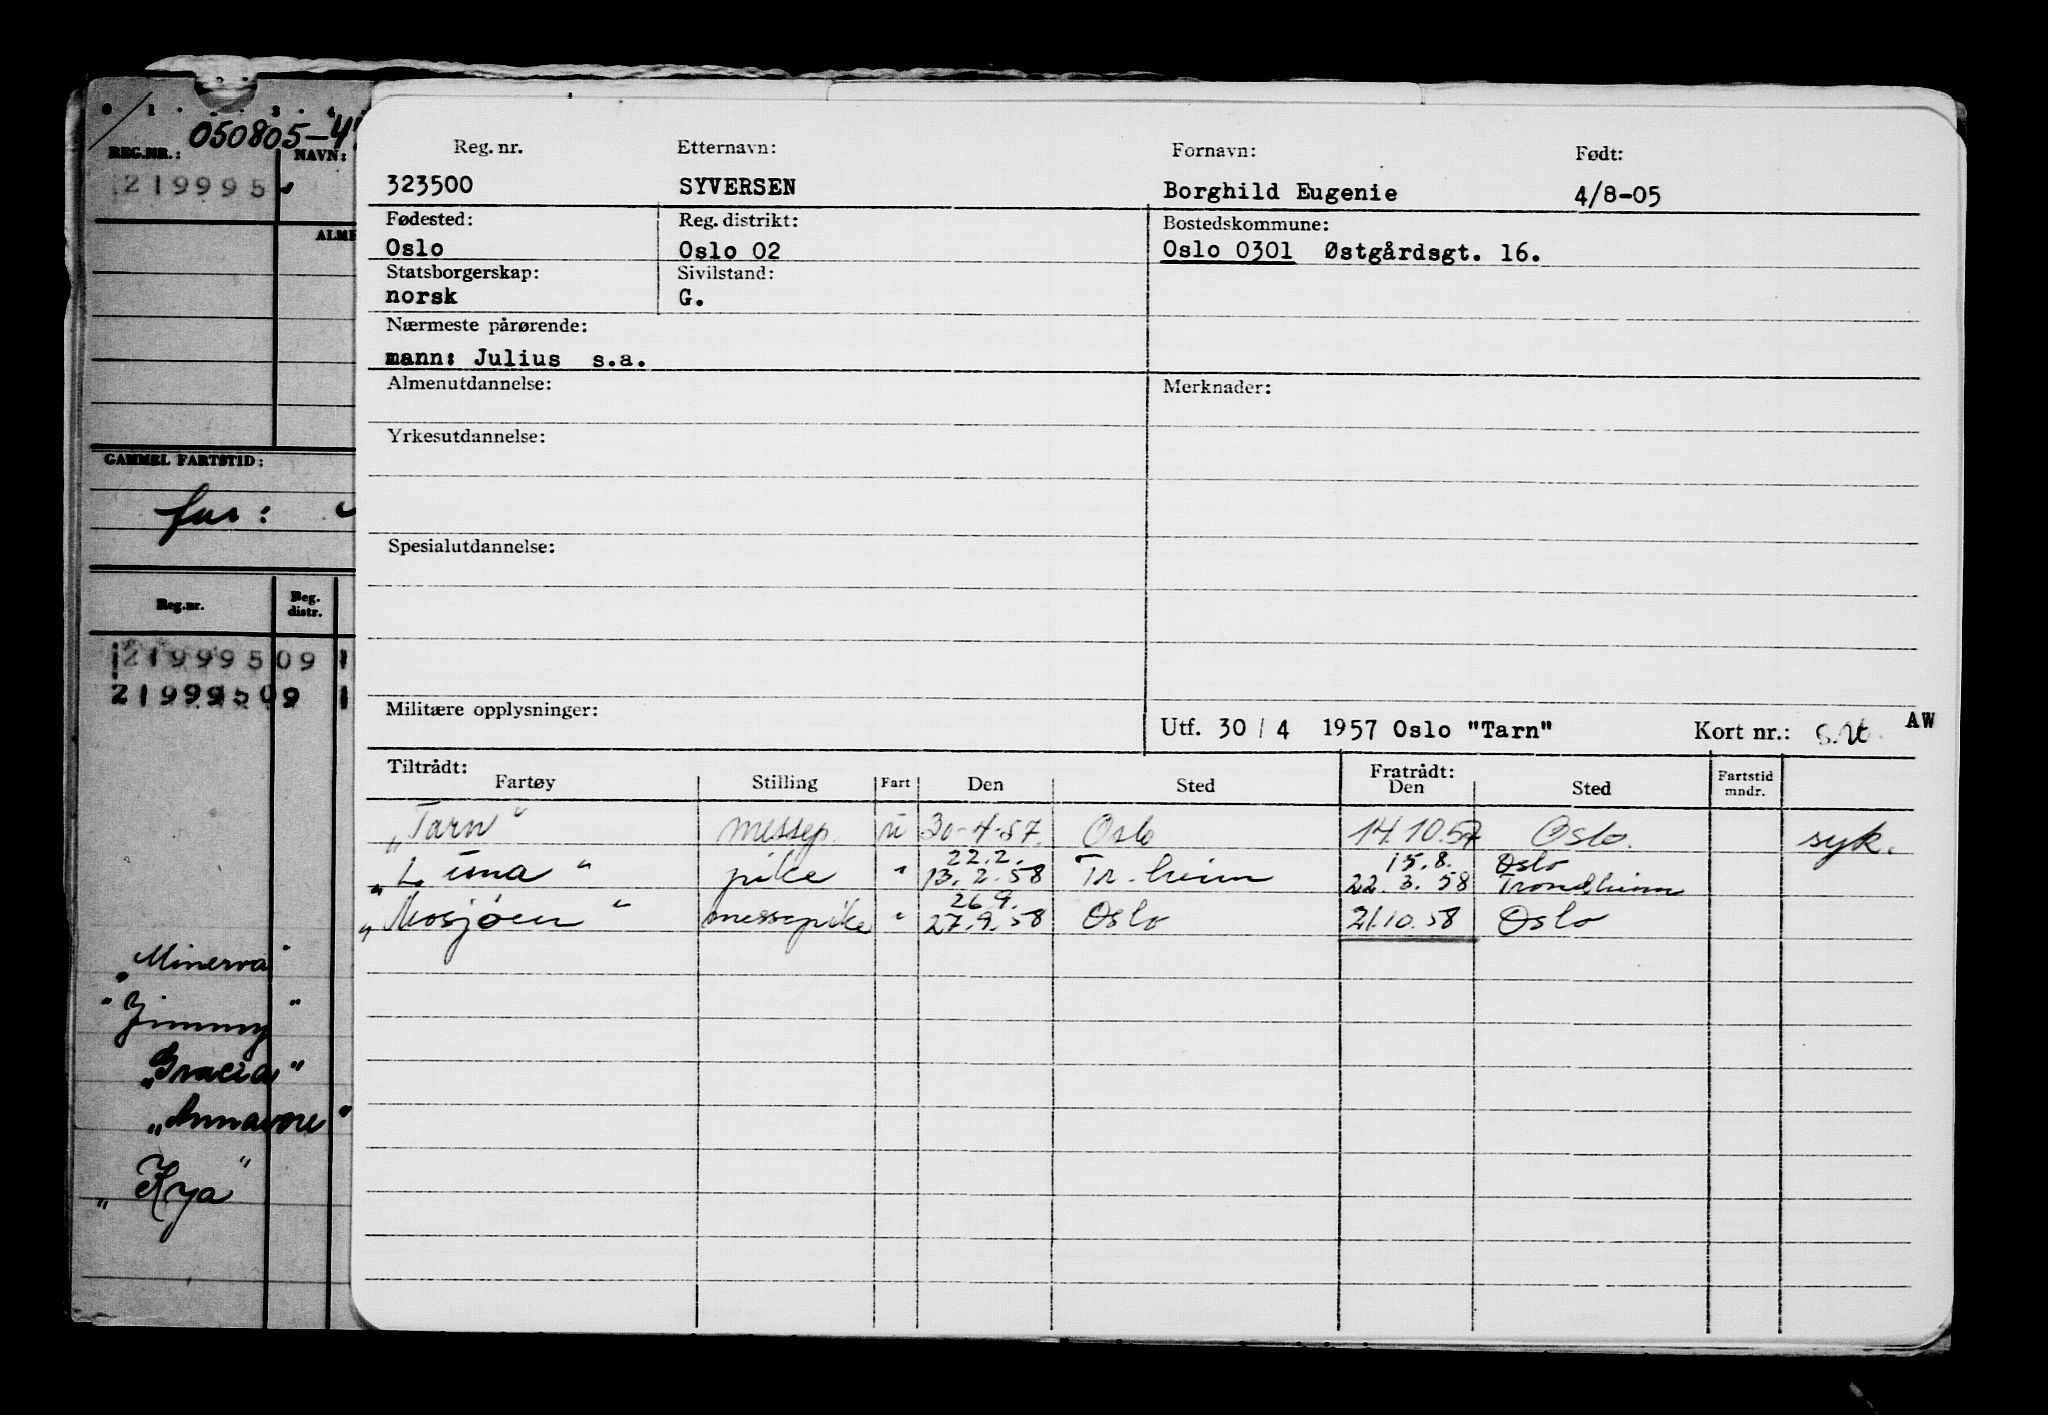 0 1 2 3 4
050805-4
REG.NR.: NAVN:
219995
ALME
GAMMEL FARTSTID:
Reg.nr. Reg. distr.
219995 09 1
219995 09 1
"Minerva"
"Jimmy"
"Gracia"
"Annavore"
"Kya"
Reg. nr. Etternavn: Fornavn: Født:
323500 SYVERSEN Borghild Eugenie 4/8-05
Fødested: Reg. distrikt: Bostedskommune:
Oslo Oslo 02 Oslo 0301 Østgårdsgt. 16.
Statsborgerskap: Sivilstand:
norsk G.
Nærmeste pårørende:
mann: Julius s.a.
Almenutdannelse: Merknader:
Yrkesutdannelse:
Spesialutdannelse:
Militære opplysninger:
Utf. 30 / 4 1957 Oslo "Tarn" Kort nr.: AW
Tiltrådt: Fratrådt:
Fartøy Stilling Fart Den Sted Den Sted Fartstid mndr.
"Tarn" messep. u 30-4-57. Oslo 14.10.57 Oslo. syk.
22.2. 15.8. Oslo
"Luna" pike " 13.2.58 Tr.heim 22.3.58 Trondheim
26.9.
"Mosjøen" messepike " 27.9.58 Oslo 21.10.58 Oslo